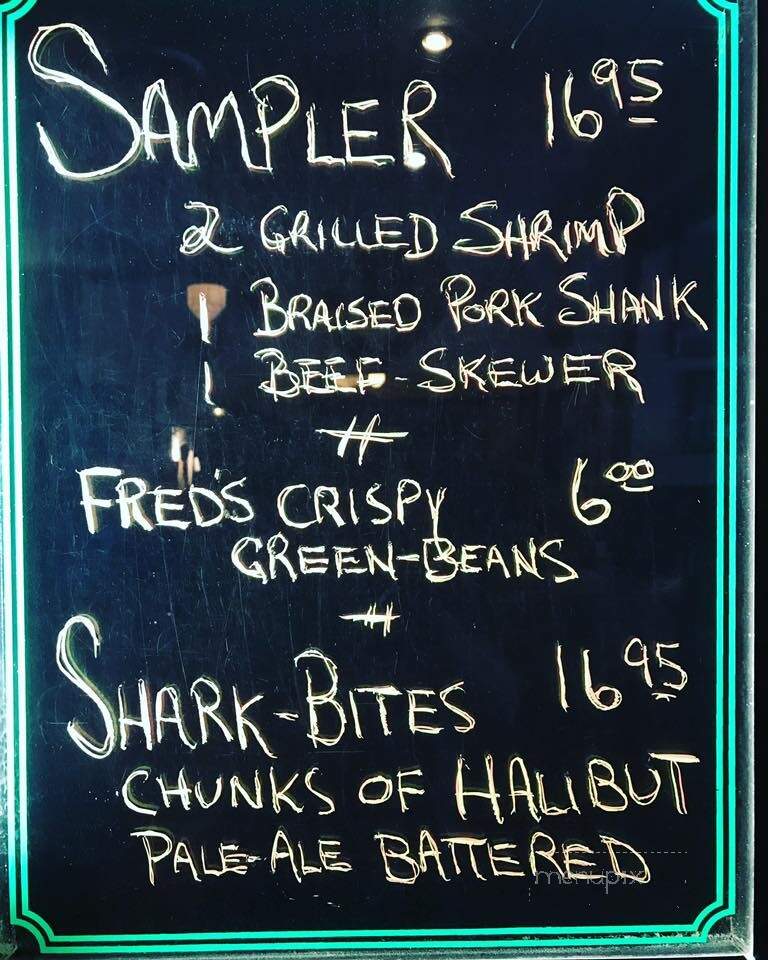 SAMPLER 16 95
2 GRILLED SHRIMP
1 BRAISED PORK SHANK
1 BEEF-SKEWER
FRED'S CRISPY 6 00
GREEN-BEANS
SHARK-BITES 16 95
CHUNKS OF HALIBUT
PALE-ALE BATTERED
menupix